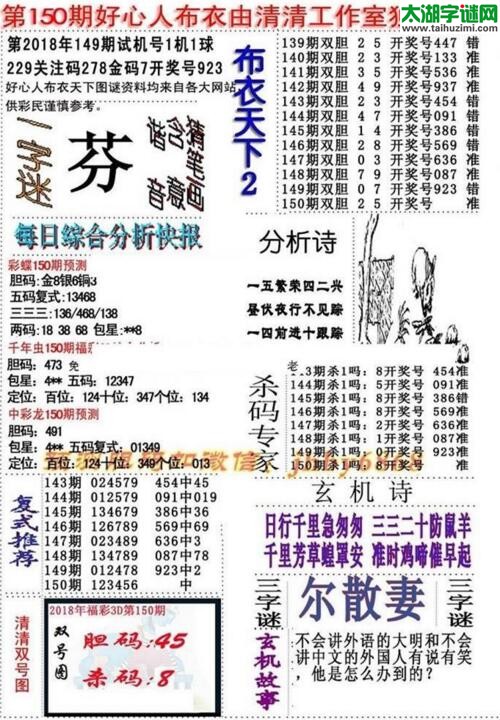 太湖字谜网
www.taihuzimi.com
第150期好心人布衣由清清工作室
第2018年149期试机号1机1球
229关注码278金码7开奖号923
好心人布衣天下图谜资料均来自各大网站
供彩民谨慎参考。
一字迷
芬
猜笔画
含意
谐音
布衣天下2
139期双胆 2 5 开奖号447 错
140期双胆 2 4 开奖号133 准
141期双胆 3 5 开奖号536 准
142期双胆 0 9 开奖号937 准
143期双胆 2 3 开奖号454 错
144期双胆 4 7 开奖号091 错
145期双胆 1 4 开奖号386 错
146期双胆 2 8 开奖号569 错
147期双胆 0 3 开奖号636 准
148期双胆 7 9 开奖号087 准
149期双胆 0 7 开奖号923 错
150期双胆 2 9 开奖号 准
每日综合分析快报
彩蝶150期预测
胆码:金8银6铜3
五码复式:13468
三三三:136/468/138
两码:18 38 68 包星:**8
千年虫150期福彩
胆码:473
包星:4** 五码:12347
定位:百位:124十位:347个位:134
中彩龙150期预测
胆码:491
包星:4** 五码复式:01349
定位:百位:124十位:349个位:013
分析诗
一五繁荣四二兴
昼伏夜行不见踪
一四前进十跟踪
杀码专家
3期杀1吗:8开奖号 454准
144期杀1吗:5开奖号 091准
145期杀1吗:8开奖号 386错
146期杀1吗:8开奖号 569准
147期杀1吗:2开奖号 636准
148期杀1吗:1开奖号 087准
149期杀1吗:0开奖号 923准
150期杀1吗:8开奖号 准
复式推荐
143期 024579 454中45
144期 012579 091中019
145期 134679 386中36
146期 126789 569中69
147期 023679 636中36
148期 134789 087中78
149期 012478 923中2
150期 123456 中
玄机诗
日行千里急匆匆 三三二十防鼠羊
千里芳草蝗罩安 准时鸡啼催早起
清清双号图
2018年福彩3D第150期
双号图
胆码:45
杀码:8
三字谜
尔散妻
三字谜
玄机故事
不会讲外语的大明和不会
讲中文的外国人有说有笑
,他是怎么办到的?